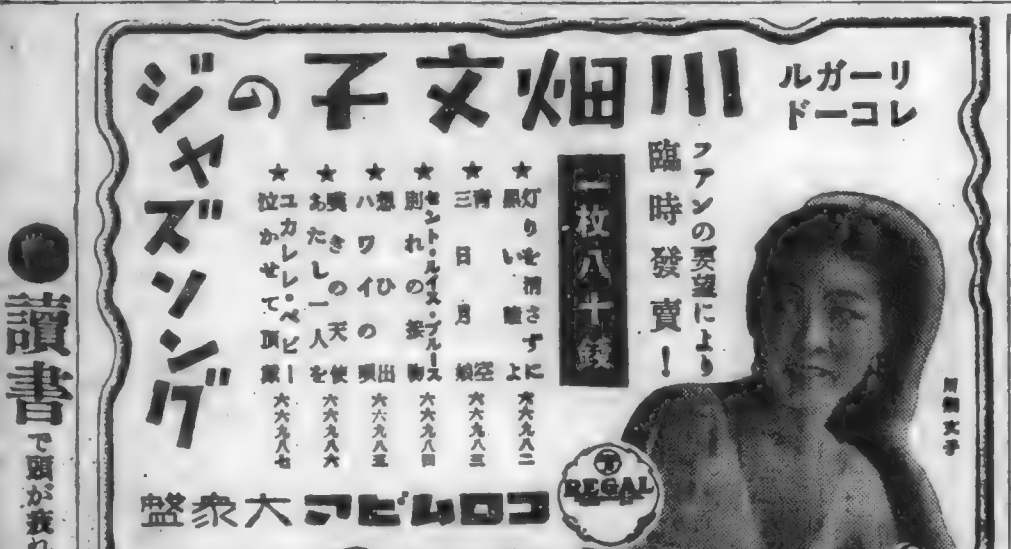 リーガル
レコード
川畑文子の
ジャズソング
ファンの要望により
臨時發賣!
一枚八十錢
★灯りを消さずに
黒い瞳よ
六六九八二
★青空
三日月娘
六六九八三
★セント・ルイス・ブルース
別れの接吻
六六九八四
★想ひ出
ハワイの唄
六六九八五
★嘆きの天使
あたし一人を
六六九八六
★ユカレレ・ベビー
泣かせて頂戴
六六九八七
コロムビア大衆盤
REGAL
川畑文子
讀書
で頭が疲れ